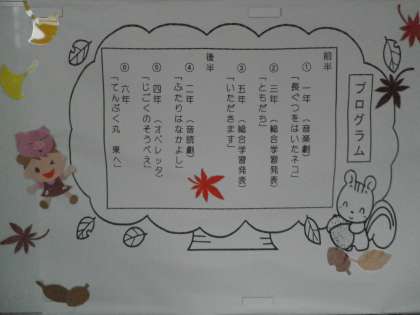 プログラム
前半
① 一年 (音楽劇)
「長ぐつをはいたネコ」
② 三年 (総合学習発表)
「ともだち」
③ 五年 (総合学習発表)
「いただきます」
後半
④ 二年 (音読劇)
「ふたりはなかよし」
⑤ 四年 (オペレッタ)
「じごくのそうべえ」
⑥ 六年
「てんぷく丸 東へ」